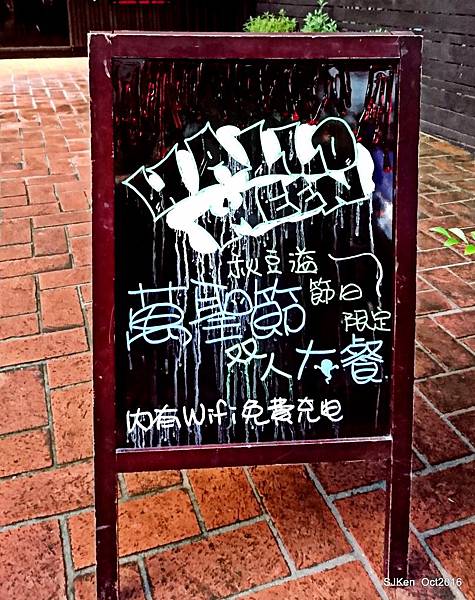 HALLO
WEEN
秋豆溢
萬聖節
節日
限定
双人大餐
內有Wifi免費充电
SJKen Oct2016